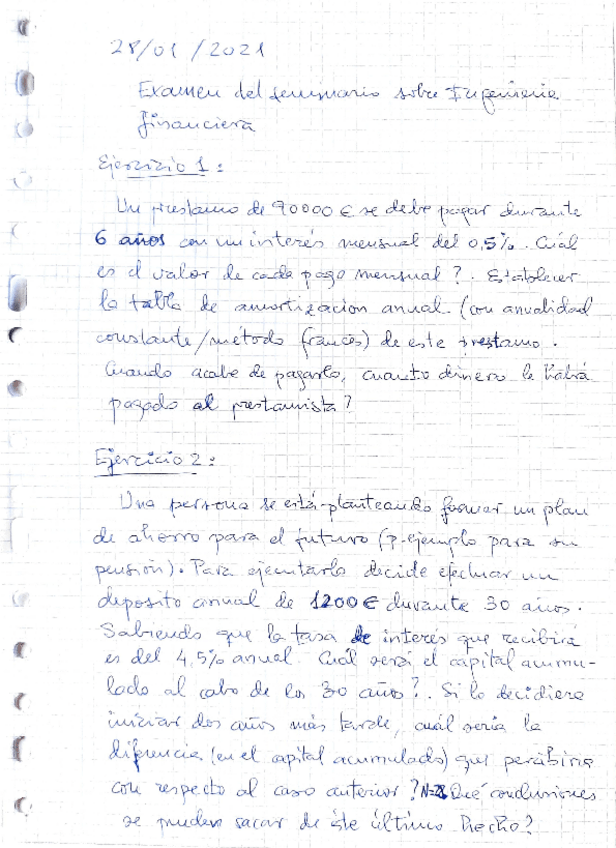 28/01/2021
Examen del seminario sobre Ingenieria
financiera
Ejercicio 1:
Un prestamo de 90000 € se debe pagar durante
6 años con un interés mensual del 0,5%. Cuál
es el valor de cada pago mensual?. Establecer
la tabla de amortizacion anual (con anualidad
constante/método francés) de este prestamo.
Cuando acabe de pagarlo, cuanto dinero le habrá
pagado al prestamista?
Ejercicio 2:
Una persona se está planteando formar un plan
de ahorro para el futuro (p.ejemplo para su
pensión). Para ejecutarlo decide efectuar un
deposito anual de 1200€ durante 30 años.
Sabiendo que la tasa de interés que recibirá
es del 4,5% anual. Cuál será el capital acumu-
lado al cabo de los 30 años?. Si lo decidiera
iniciar dos años más tarde, cuál sería la
diferencia (en el capital acumulado) que percibiría
con respecto al caso anterior? Qué conclusiones
se pueden sacar de éste último hecho?